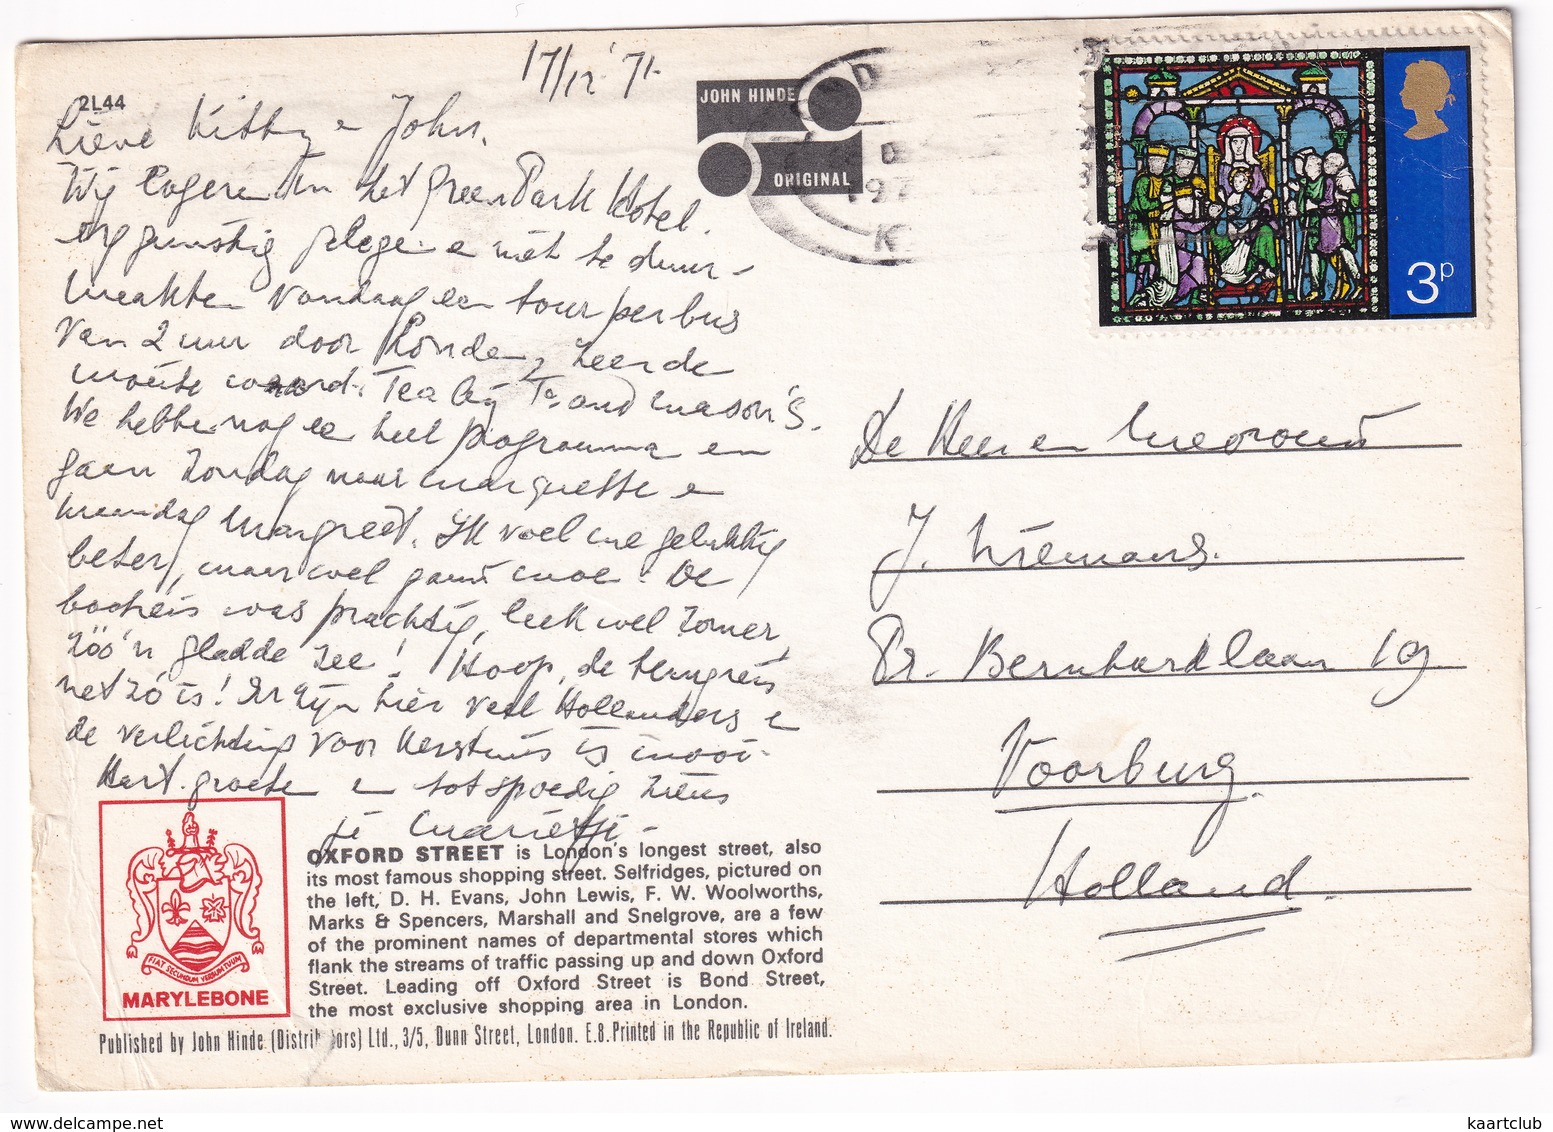 17/12 '71.
2L44
JOHN HINDE
ORIGINAL
Lieve Kitty en John.
Wij logeren in het Green Park Hotel.
erg gunstig gelegen en niet te duur –
Maakten vandaag een tour per bus
van 2 uur door Londen, zeer de
moeite waard. Tea bij F. and Mason's.
We hebben nog een heel programma en
gaan Zondag naar Marquette en
maandag Margreet. Ik voel me gelukkig
beter, maar wel gauw moe. De
bootreis was prachtig, leek wel zomer,
zóó'n gladde zee! Hoop, de terugreis
net zó is! Er zijn hier veel Hollanders en
de verlichting voor Kerstmis is mooi.
Hart. groeten en tot spoedig ziens
je Marietje –
3P
De Heer en Mevrouw
J. Niemans.
Pr. Bernhardlaan 19
Voorburg.
Holland.
FIAT SECUNDUM VERBUM TUUM
MARYLEBONE
OXFORD STREET is London's longest street, also
its most famous shopping street. Selfridges, pictured on
the left, D. H. Evans, John Lewis, F. W. Woolworths,
Marks & Spencers, Marshall and Snelgrove, are a few
of the prominent names of departmental stores which
flank the streams of traffic passing up and down Oxford
Street. Leading off Oxford Street is Bond Street,
the most exclusive shopping area in London.
Published by John Hinde (Distributors) Ltd., 3/5, Dunn Street, London. E.8. Printed in the Republic of Ireland.
www.delcampe.net
kaartclub